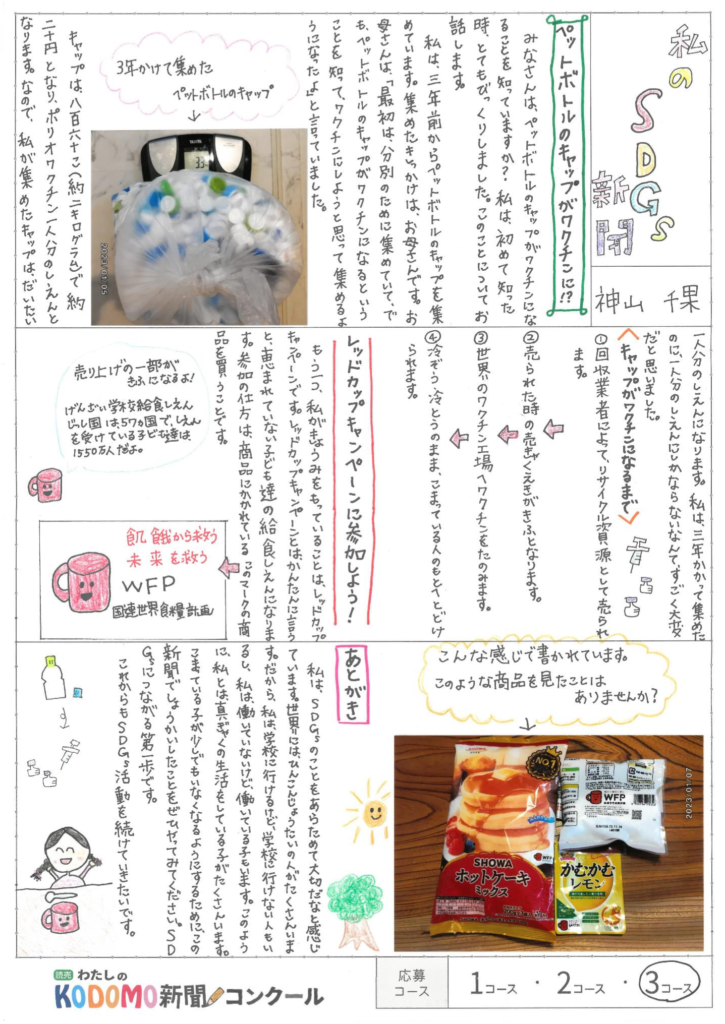 私の
SDGs
新聞
神山 千果
ペットボトルのキャップがワクチンに!?
みなさんは、ペットボトルのキャップがワクチンにな
ることを知っていますか?私は、初めて知った
時、とてもびっくりしました。このことについてお
話します。
私は、三年前からペットボトルのキャップを集
めています。集めたきっかけは、お母さんです。お
母さんは、「最初は分別のために集めていて、で
も、ペットボトルのキャップがワクチンになるという
ことを知って、ワクチンにしようと思って集めるよ
うになったよ」と言っていました。
3年かけて集めた
ペットボトルのキャップ
2023/01/05
キャップは、八百六十こ(約二キログラム)で約
二十円となり、ポリオワクチン一人分のしえんと
なります。なので、私が集めたキャップは、だいたい
一人分のしえんになります。私は、三年かかって集めた
のに、一人分のしえんにしかならないなんて、すごく大変
だと思いました。
キャップがワクチンになるまで
①回収業者によって、リサイクル資源として売られ
ます。
②売られた時の売きゃくえきがきふとなります。
③世界のワクチン工場へワクチンをたのみます。
④冷ぞう、冷とうのまま、こまっている人のもとへとどけ
られます。
レッドカップキャンペーンに参加しよう!
もう一つ、私がきょうみをもっていることは、レッドカップ
キャンペーンです。レッドカップキャンペーンとはかんたんに言う
と、恵まれていない子ども達の給食しえんになりま
す。参加の仕方は、商品にかかれているこのマークの商
品を買うことです。
売り上げの一部が
きふになるよ!
げんざい学校給食しえん
じっし国は、57カ国で、しえん
を受けている子ども達は
1550万人だよ。
飢餓から救う
未来を救う
WFP
国連世界食糧計画
こんな感じで書かれています。
このような商品を見たことは
ありませんか?
SHOWA
No.1
SHOWA
ホットケーキ
ミックス
WFP
かむかむ
レモン
2023/01/07
あとがき
私は、SDGsのことをあらためて大切だなと感じ
ています。世界には、ひんこんじょうたいの人がたくさんいま
す。だから、私は学校に行けるけど、学校に行けない人もい
るし、私は働いていないけど、働いている子もいます。このよう
に、私とは真ぎゃくの生活をしている子がたくさんいます。
こまっている子が少しでもいなくなるようにするために、この
新聞でしょうかいしたことをぜひやってみてください。SD
Gsにつながる第一歩です。
これからもSDGs活動を続けていきたいです。
読売 わたしの
KODOMO新聞コンクール
応募
コース
1コース・2コース・3コース